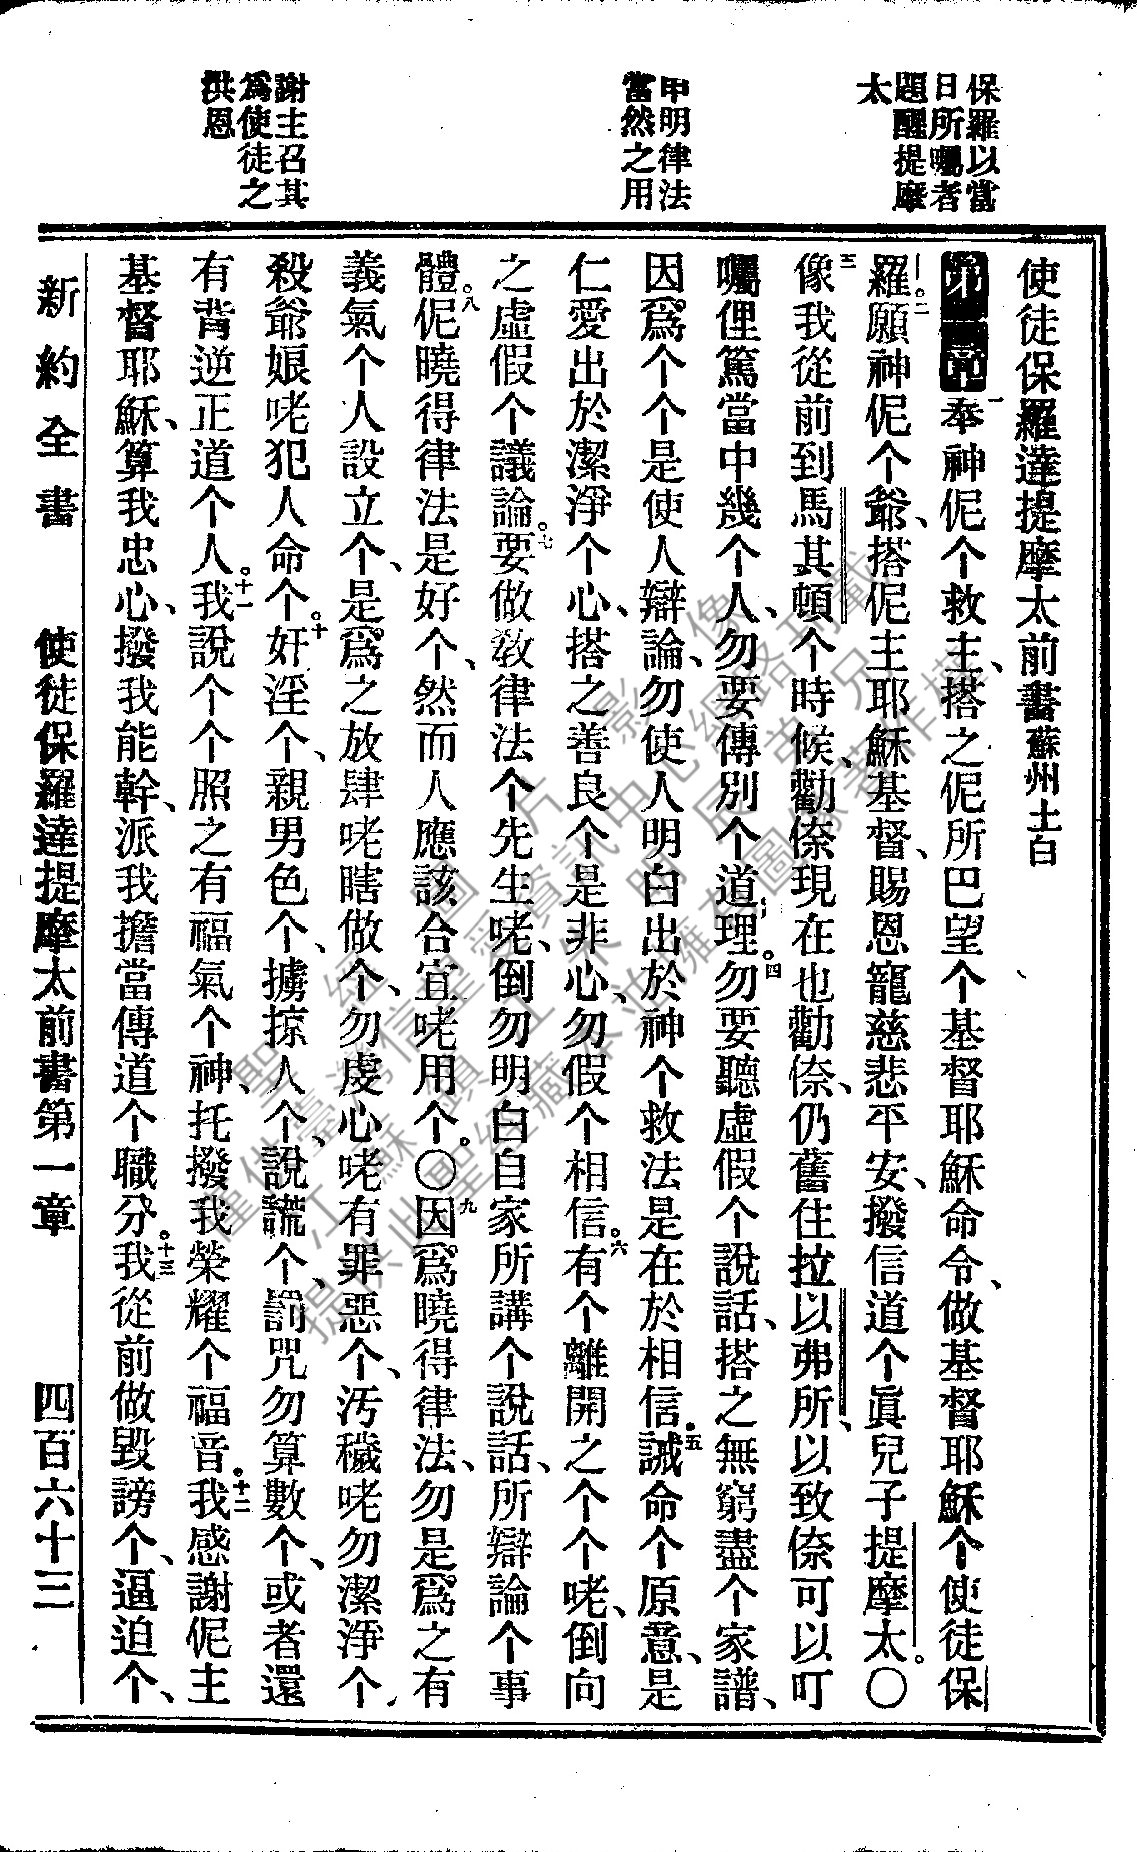 保羅以當
日所囑者
題醒提摩
太
申明律法
當然之用
謝主召其
爲使徒之
洪恩
使徒保羅達提摩太前書蘇州土白
第一章 一奉神伲个救主、搭之伲所巴望个基督耶穌命令、做基督耶穌个使徒保
羅。二願神伲个爺、搭伲主耶穌基督、賜恩寵慈悲平安、撥信道个眞兒子提摩太。〇
三像我從前到馬其頓个時候、勸倷現在也勸倷、仍舊住拉以弗所、以致倷可以叮
囑俚篤當中幾个人、勿要傳別个道理。四勿要聽虛假个說話、搭之無窮盡个家譜、
因爲个个是使人辯論、勿使人明白出於神个救法是在於相信。五誡命个原意、是
仁愛出於潔淨个心、搭之善良个是非心、勿假个相信。六有个離開之个个咾、倒向
之虛假个議論。七要做敎律法个先生咾、倒勿明白自家所講个說話、所辯論个事
體。八伲曉得律法是好个、然而人應該合宜咾用个。〇九因爲曉得律法、勿是爲之有
義氣个人設立个、是爲之放肆咾瞎做个、勿虔心咾有罪惡个、汚穢咾勿潔淨个、
殺爺娘咾犯人命个。十奸淫个、親男色个、擄掠人个、說謊个、罰咒勿算數个、或者還
有背逆正道个人。十一我說个个照之有福氣个神、托撥我榮耀个福音。十二我感謝伲主
基督耶穌、算我忠心、撥我能幹、派我擔當傳道个職分。十三我從前做毀謗个、逼迫个、
新約全書 使徒保羅達提摩太前書第一章 四百六十三